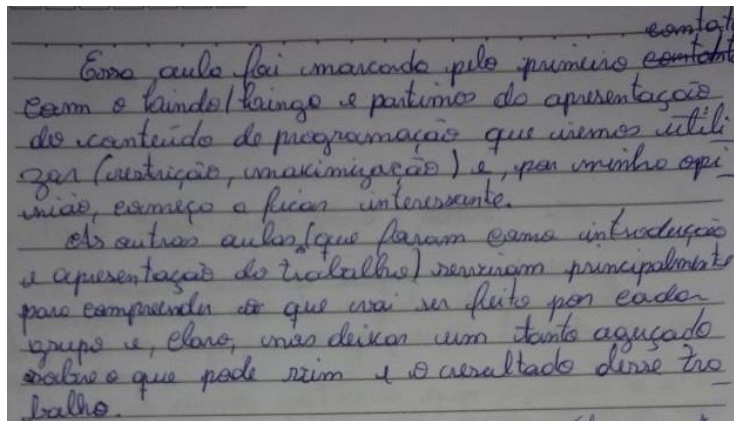 contato
Essa aula foi marcada pelo primeiro contato
com o laindo/laingo e partimos da apresentação
do conteúdo de programação que iremos utili
zar (restrição, maximização) e, por minha opi_
nião, começa a ficar interessante.
As outras aulas (que foram como introdução
e apresentação do trabalho) serviram principalmente
para compreender o que vai ser feito por cada
grupo e, claro, nos deixar um tanto aguçado
sobre o que pode vim e o resultado desse tra_
balho.